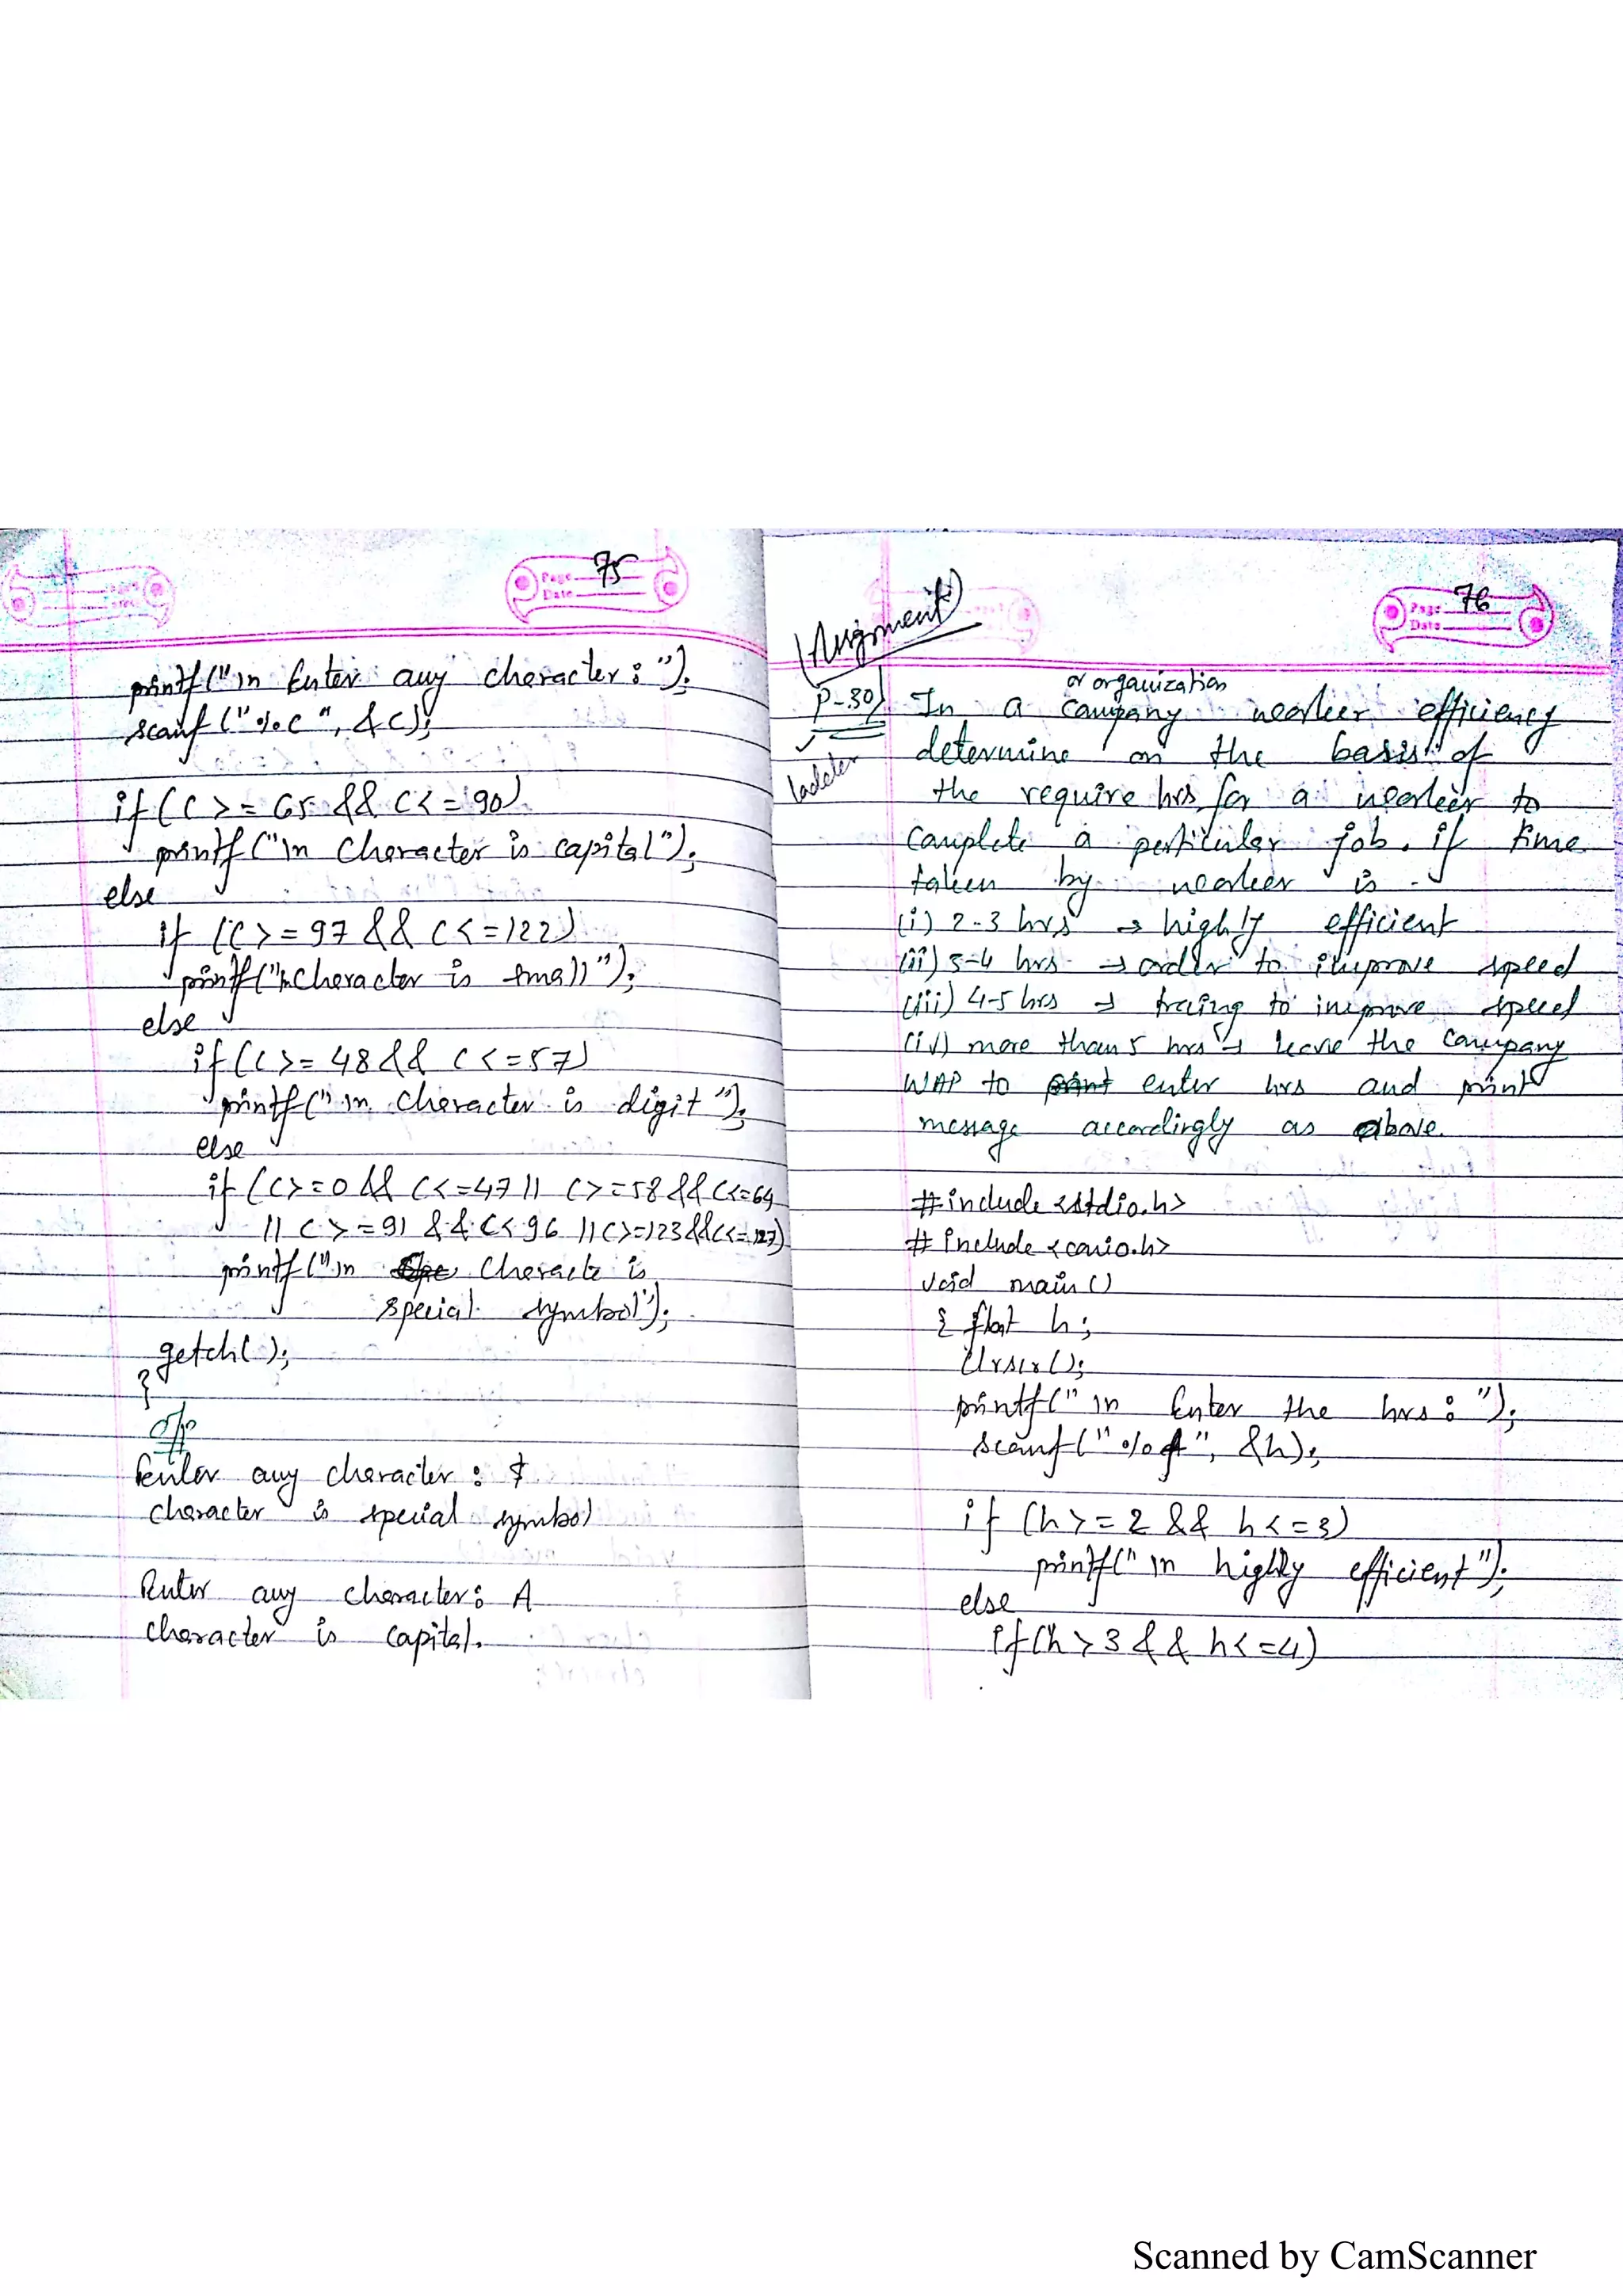 Page 75
Date
printf("\n Enter any character : ");
scanf ("%c", &c);
if (c >= 65 && c <= 90)
printf ("\n Character is capital");
else
if (c >= 97 && c <= 122)
printf("\n Character is small");
else
if (c >= 48 && c <= 57)
printf("\n character is digit");
else
if (c>=0 && c<=47 || c>=58 && c<=64
|| c >= 91 && c< 96 || c>=123 && c<=127)
printf("\n Characte is
special symbol");
getch( );
}
o/p
Enter any character :
character is special symbol
Enter any character: A
character is capital.
Page 76
Date
(Assignment)
P-30)
ladder
or organization
In a company worker efficiency
determine on the basis of
the require hrs, for a worker to
complete a perticular job. if time
taken by worker is -
(i) 2-3 hrs → highly efficient
(ii) 3-4 hrs → order to improve speed
(iii) 4-5 hrs → traing to improve speed
(iv) more than 5 hrs → leave the company
WAP to enter hrs and print
message accordingly as above.
#include <stdio.h>
#include <conio.h>
void main ()
{ float h;
clrscr();
printf("\n Enter the hrs : ");
scanf("%f", &h);
if (h >= 2 && h <= 3)
printf("\n highly efficient");
else
if(h > 3 && h <= 4)
Scanned by CamScanner